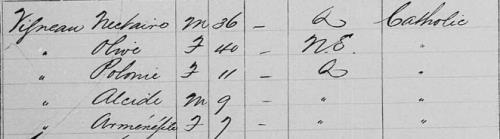 Vigneau Nectaire M 36 – Q Catholic
" Olive F 40 – N.E. "
" Polonie F 11 – Q "
" Alcide M 9 – " "
" F 7 – " "